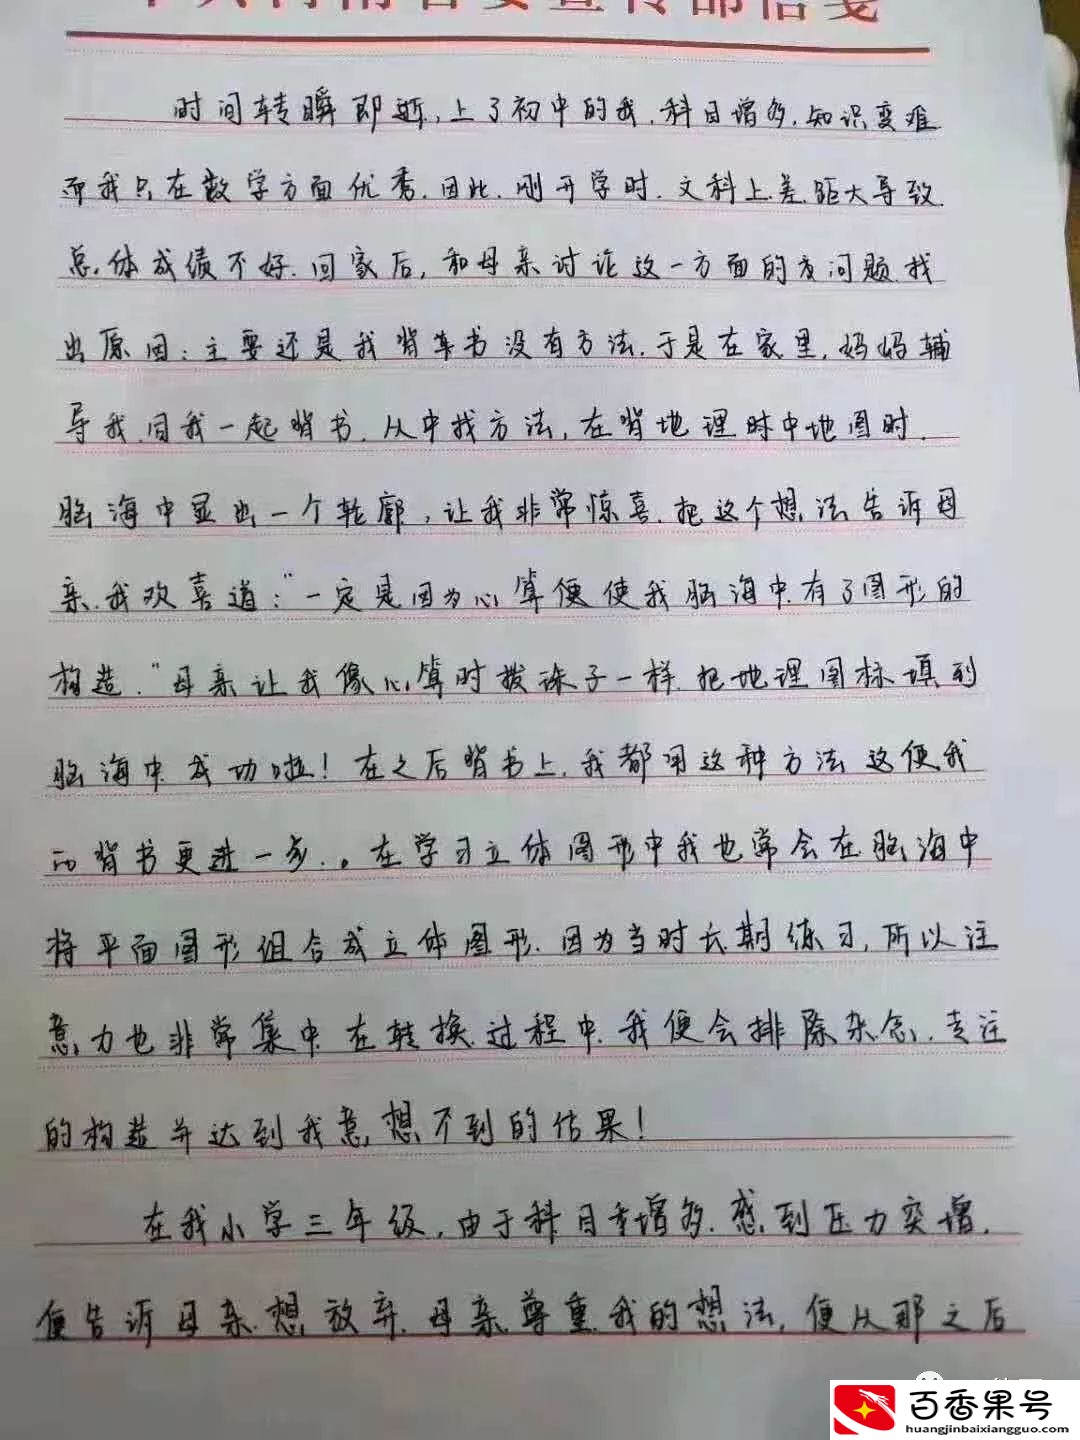 中共河南省委宣传部信笺
时间转瞬即逝，上了初中的我，科目增多，知识变难
而我只在数学方面优秀，因此，刚开学时，文科上差距大导致
总体成绩不好，回家后，和母亲讨论这一方面的问题，找
出原因：主要还是我背书没有方法，于是在家里，妈妈辅
导我，同我一起背书，从中找方法，在背地理时中地图时，
脑海中显出一个轮廓，让我非常惊喜，把这个想法告诉母
亲，我欢喜道：“一定是因为心算便使我脑海中有了图形的
构造。”母亲让我像心算时拨珠子一样，把地理图标填到
脑海中，成功啦！在之后背书上，我都用这种方法，这便我
的背书更进一步。。在学习立体图形中我也常会在脑海中
将平面图形组合成立体图形，因为当时长期练习，所以注
意力也非常集中，在转换过程中，我便会排除杂念，专注
的构造并达到我意想不到的结果！
在我小学三年级，由于科目增多，感到压力突增，
便告诉母亲，想放弃，母亲尊重我的想法，便从那之后
百香果号
huangjinbaixiangguo.com